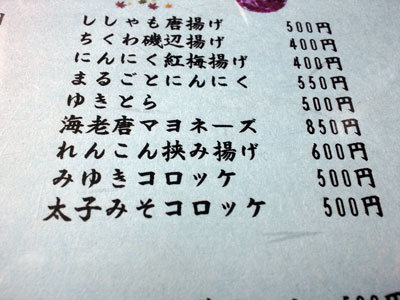 ししゃも唐揚げ 500円
ちくわ磯辺揚げ 400円
にんにく紅梅揚げ 400円
まるごとにんにく 550円
ゆきとら 500円
海老唐マヨネーズ 850円
れんこん挟み揚げ 600円
みゆきコロッケ 500円
太子みそコロッケ 500円